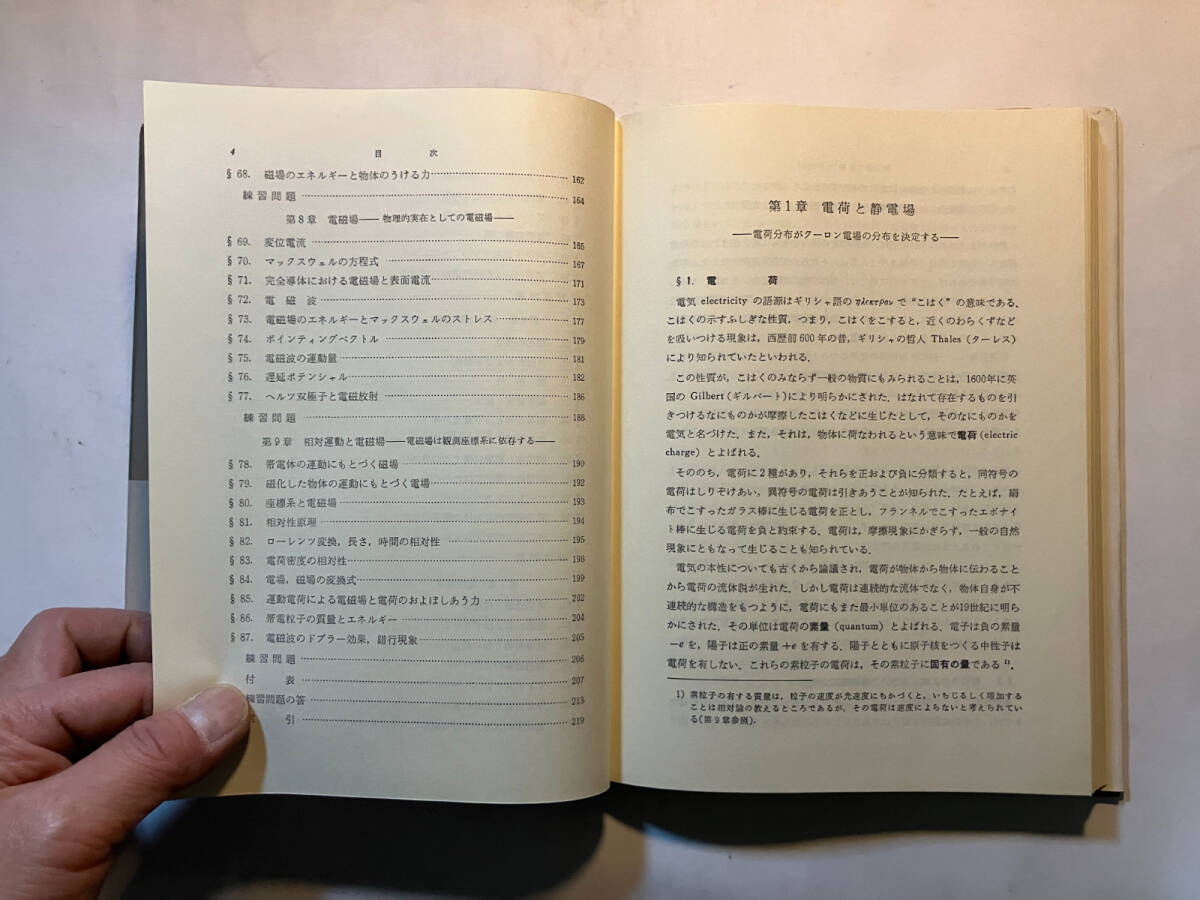 4 目次
§ 68. 磁場のエネルギーと物体のうける力 162
練習問題 164
第8章 電磁場——物理的実在としての電磁場——
§ 69. 変位電流 165
§ 70. マックスウェルの方程式 167
§ 71. 完全導体における電磁場と表面電流 171
§ 72. 電磁波 173
§ 73. 電磁場のエネルギーとマックスウェルのストレス 177
§ 74. ポインティングベクトル 179
§ 75. 電磁波の運動量 181
§ 76. 遅延ポテンシャル 182
§ 77. ヘルツ双極子と電磁放射 186
練習問題 188
第9章 相対運動と電磁場——電磁場は観測座標系に依存する——
§ 78. 帯電体の運動にもとづく磁場 190
§ 79. 磁化した物体の運動にもとづく電場 192
§ 80. 座標系と電磁場 193
§ 81. 相対性原理 194
§ 82. ローレンツ変換,長さ,時間の相対性 195
§ 83. 電荷密度の相対性 198
§ 84. 電場,磁場の変換式 199
§ 85. 運動電荷による電磁場と電荷のおよぼしあう力 202
§ 86. 帯電粒子の質量とエネルギー 204
§ 87. 電磁波のドプラー効果,錯行現象 205
練習問題 206
付表 207
練習問題の答 213
引 219
第1章 電荷と静電場
——電荷分布がクーロン電場の分布を決定する——
§ 1. 電荷
電気 electricity の語源はギリシャ語の ηλεκτρον で “こはく” の意味である.
こはくの示すふしぎな性質,つまり,こはくをこすると,近くのわらくずなど
を吸いつける現象は,西歴前600年の昔,ギリシャの哲人 Thales (ターレス)
により知られていたといわれる.
この性質が,こはくのみならず一般の物質にもみられることは,1600年に英
国の Gilbert (ギルバート) により明らかにされた.はなれて存在するものを引
きつけるなにものかが摩擦したこはくなどに生じたとして,そのなにものかを
電気と名づけた.また,それは,物体に荷なわれるという意味で電荷 (electric
charge) とよばれる.
そののち,電荷に2種があり,それらを正および負に分類すると,同符号の
電荷はしりぞけあい,異符号の電荷は引きあうことが知られた.たとえば,絹
布でこすったガラス棒に生じる電荷を正とし,フランネルでこすったエボナイ
ト棒に生じる電荷を負と約束する.電荷は,摩擦現象にかぎらず,一般の自然
現象にともなって生じることも知られている.
電気の本性についても古くから論議され,電荷が物体から物体に伝わること
から電荷の流体説が生れた.しかし電荷は連続的な流体でなく,物体自身が不
連続的な構造をもつように,電荷にもまた最小単位のあることが19世紀に明ら
かにされた.その単位は電荷の素量 (quantum) とよばれる.電子は負の素量
−e を,陽子は正の素量 +e を有する.陽子とともに原子核をつくる中性子は
電荷を有しない.これらの素粒子の電荷は,その素粒子に固有の量である 1).
1) 素粒子の有する質量は,粒子の速度が光速度にちかづくと,いちじるしく増加する
ことは相対論の教えるところであるが,その電荷は速度によらないと考えられてい
る(第9章参照).